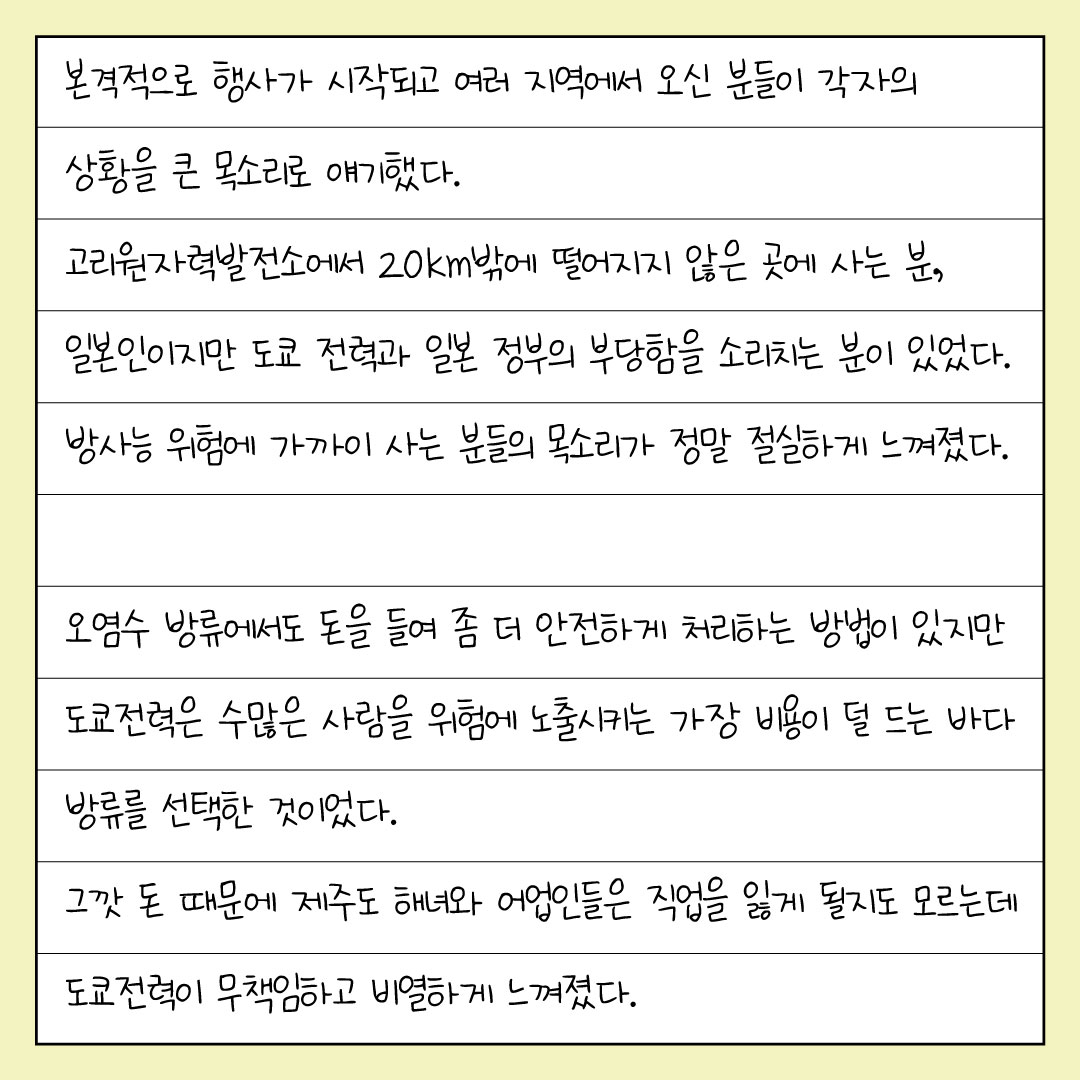 본격적으로 행사가 시작되고 여러 지역에서 오신 분들이 각자의
상황을 큰 목소리로 얘기했다.
고리원자력발전소에서 20km밖에 떨어지지 않은 곳에 사는 분,
일본인이지만 도쿄 전력과 일본 정부의 부당함을 소리치는 분이 있었다.
방사능 위험에 가까이 사는 분들의 목소리가 정말 절실하게 느껴졌다.
오염수 방류에서도 돈을 들여 좀 더 안전하게 처리하는 방법이 있지만
도쿄전력은 수많은 사람을 위험에 노출시키는 가장 비용이 덜 드는 바다
방류를 선택한 것이었다.
그깟 돈 때문에 제주도 해녀와 어업인들은 직업을 잃게 될지도 모르는데
도쿄전력이 무책임하고 비열하게 느껴졌다.